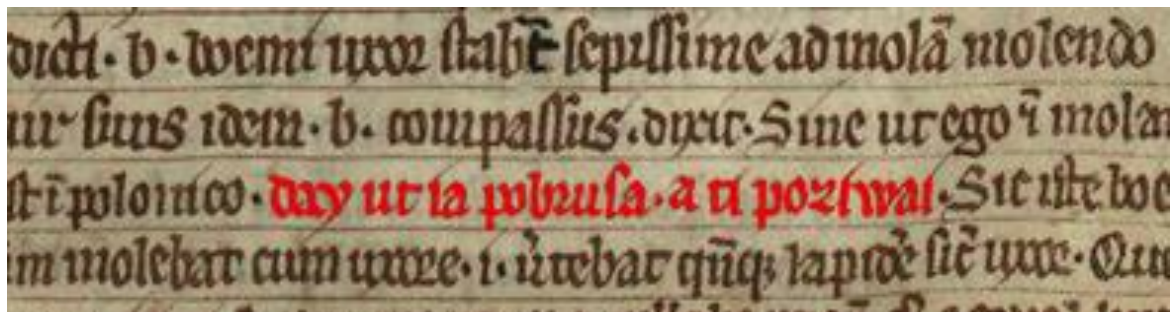 dicti · b · boemi uxor stabat sepissime ad molā molendo
ur suus idem · b · compassus · dixit · Sine ut ego ī molar
st ī polonico · day ut ia pobrusa · a ti poziwai · Sic iste boe
m molebat cum uxore · i · vtebat qūq lapidē sic uxor · Qua